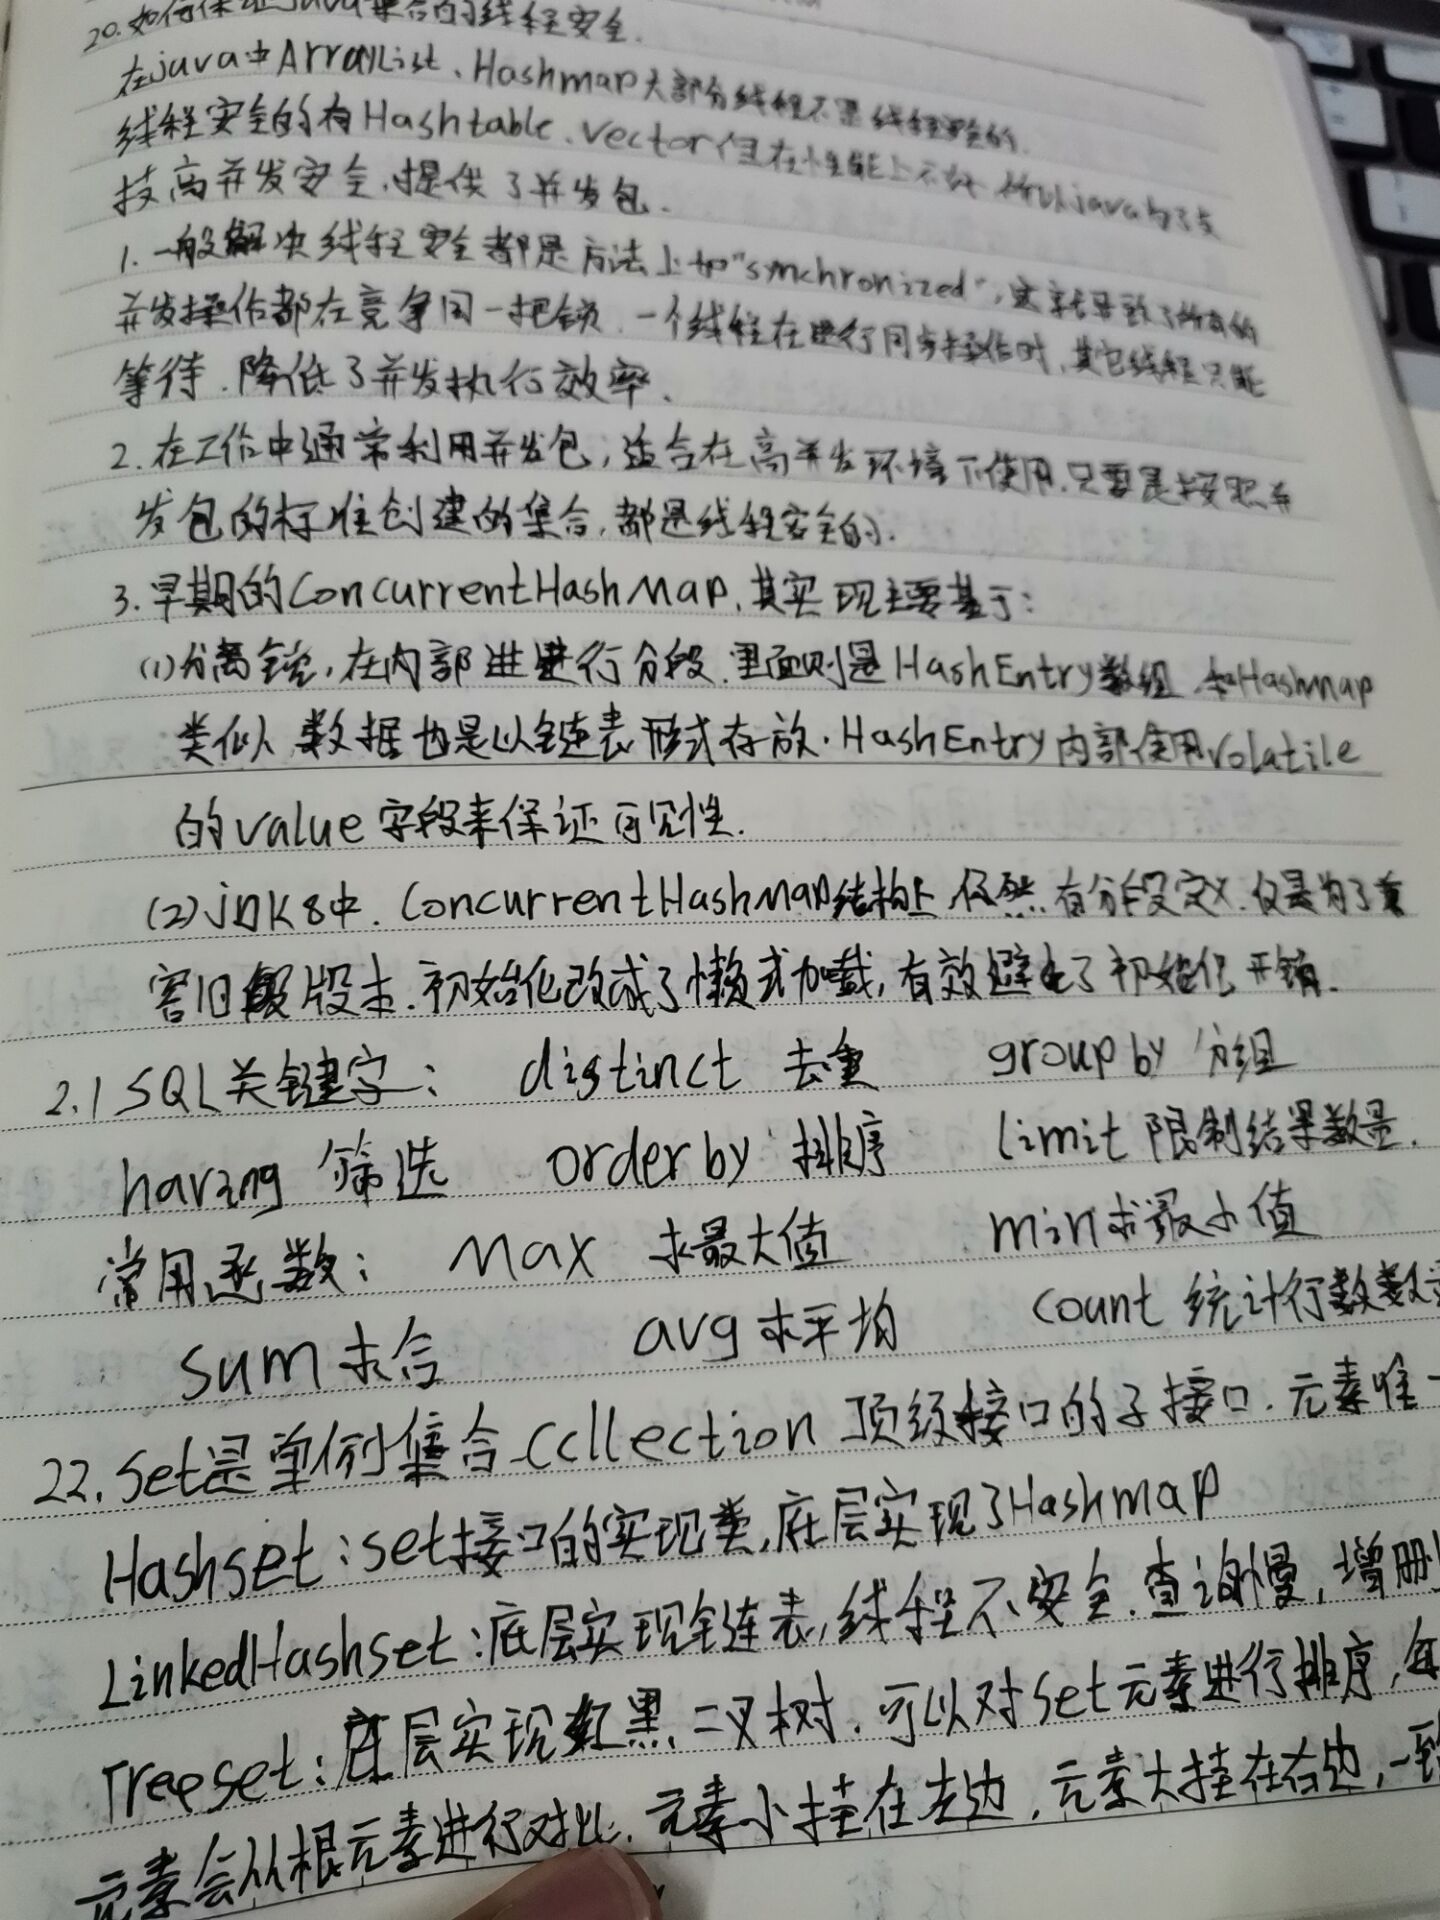 20.如何保证java集合的线程安全.
在java中ArrayList、Hashmap大部分线程不是线程安全的.
线程安全的有Hashtable、vector但在性能上不好 所以java为了支
技高并发安全,提供了并发包.
1.一般解决线程安全都是方法上加"synchronized",这就导致了所有的
并发操作都在竞争同一把锁.一个线程在进行同步操作时,其它线程只能
等待.降低了并发执行效率.
2.在工作中通常利用并发包,适合在高并发环境下使用.只要是按照并
发包的标准创建的集合,都是线程安全的.
3.早期的ConcurrentHashMap,其实现主要基于:
(1)分离锁,在内部进行分段.里面则是HashEntry数组 和Hashmap
类似 数据也是以链表形式存放.HashEntry内部使用volatile
的value字段来保证可见性.
(2)jdk8中.ConcurrentHashMap结构上仍然有分段定义.仅是为了兼
容旧版本.初始化改成了懒式加载,有效避免了初始化开销.
2.1SQL关键字: distinct 去重 group by 分组
having 筛选 order by 排序 limit限制结果数量.
常用函数: Max 求最大值 min求最小值
sum求合 avg求平均 count 统计行数数
22.Set是单例集合Collection顶级接口的子接口.元素唯一
Hashset:set接口的实现类,底层实现了Hashmap
LinkedHashset:底层实现链表,线程不安全.查询慢,增删
Treeset:底层实现红黑二叉树.可以对set元素进行排序,每
元素会从根元素进行对比.元素小挂在左边,元素大挂在右边,一致